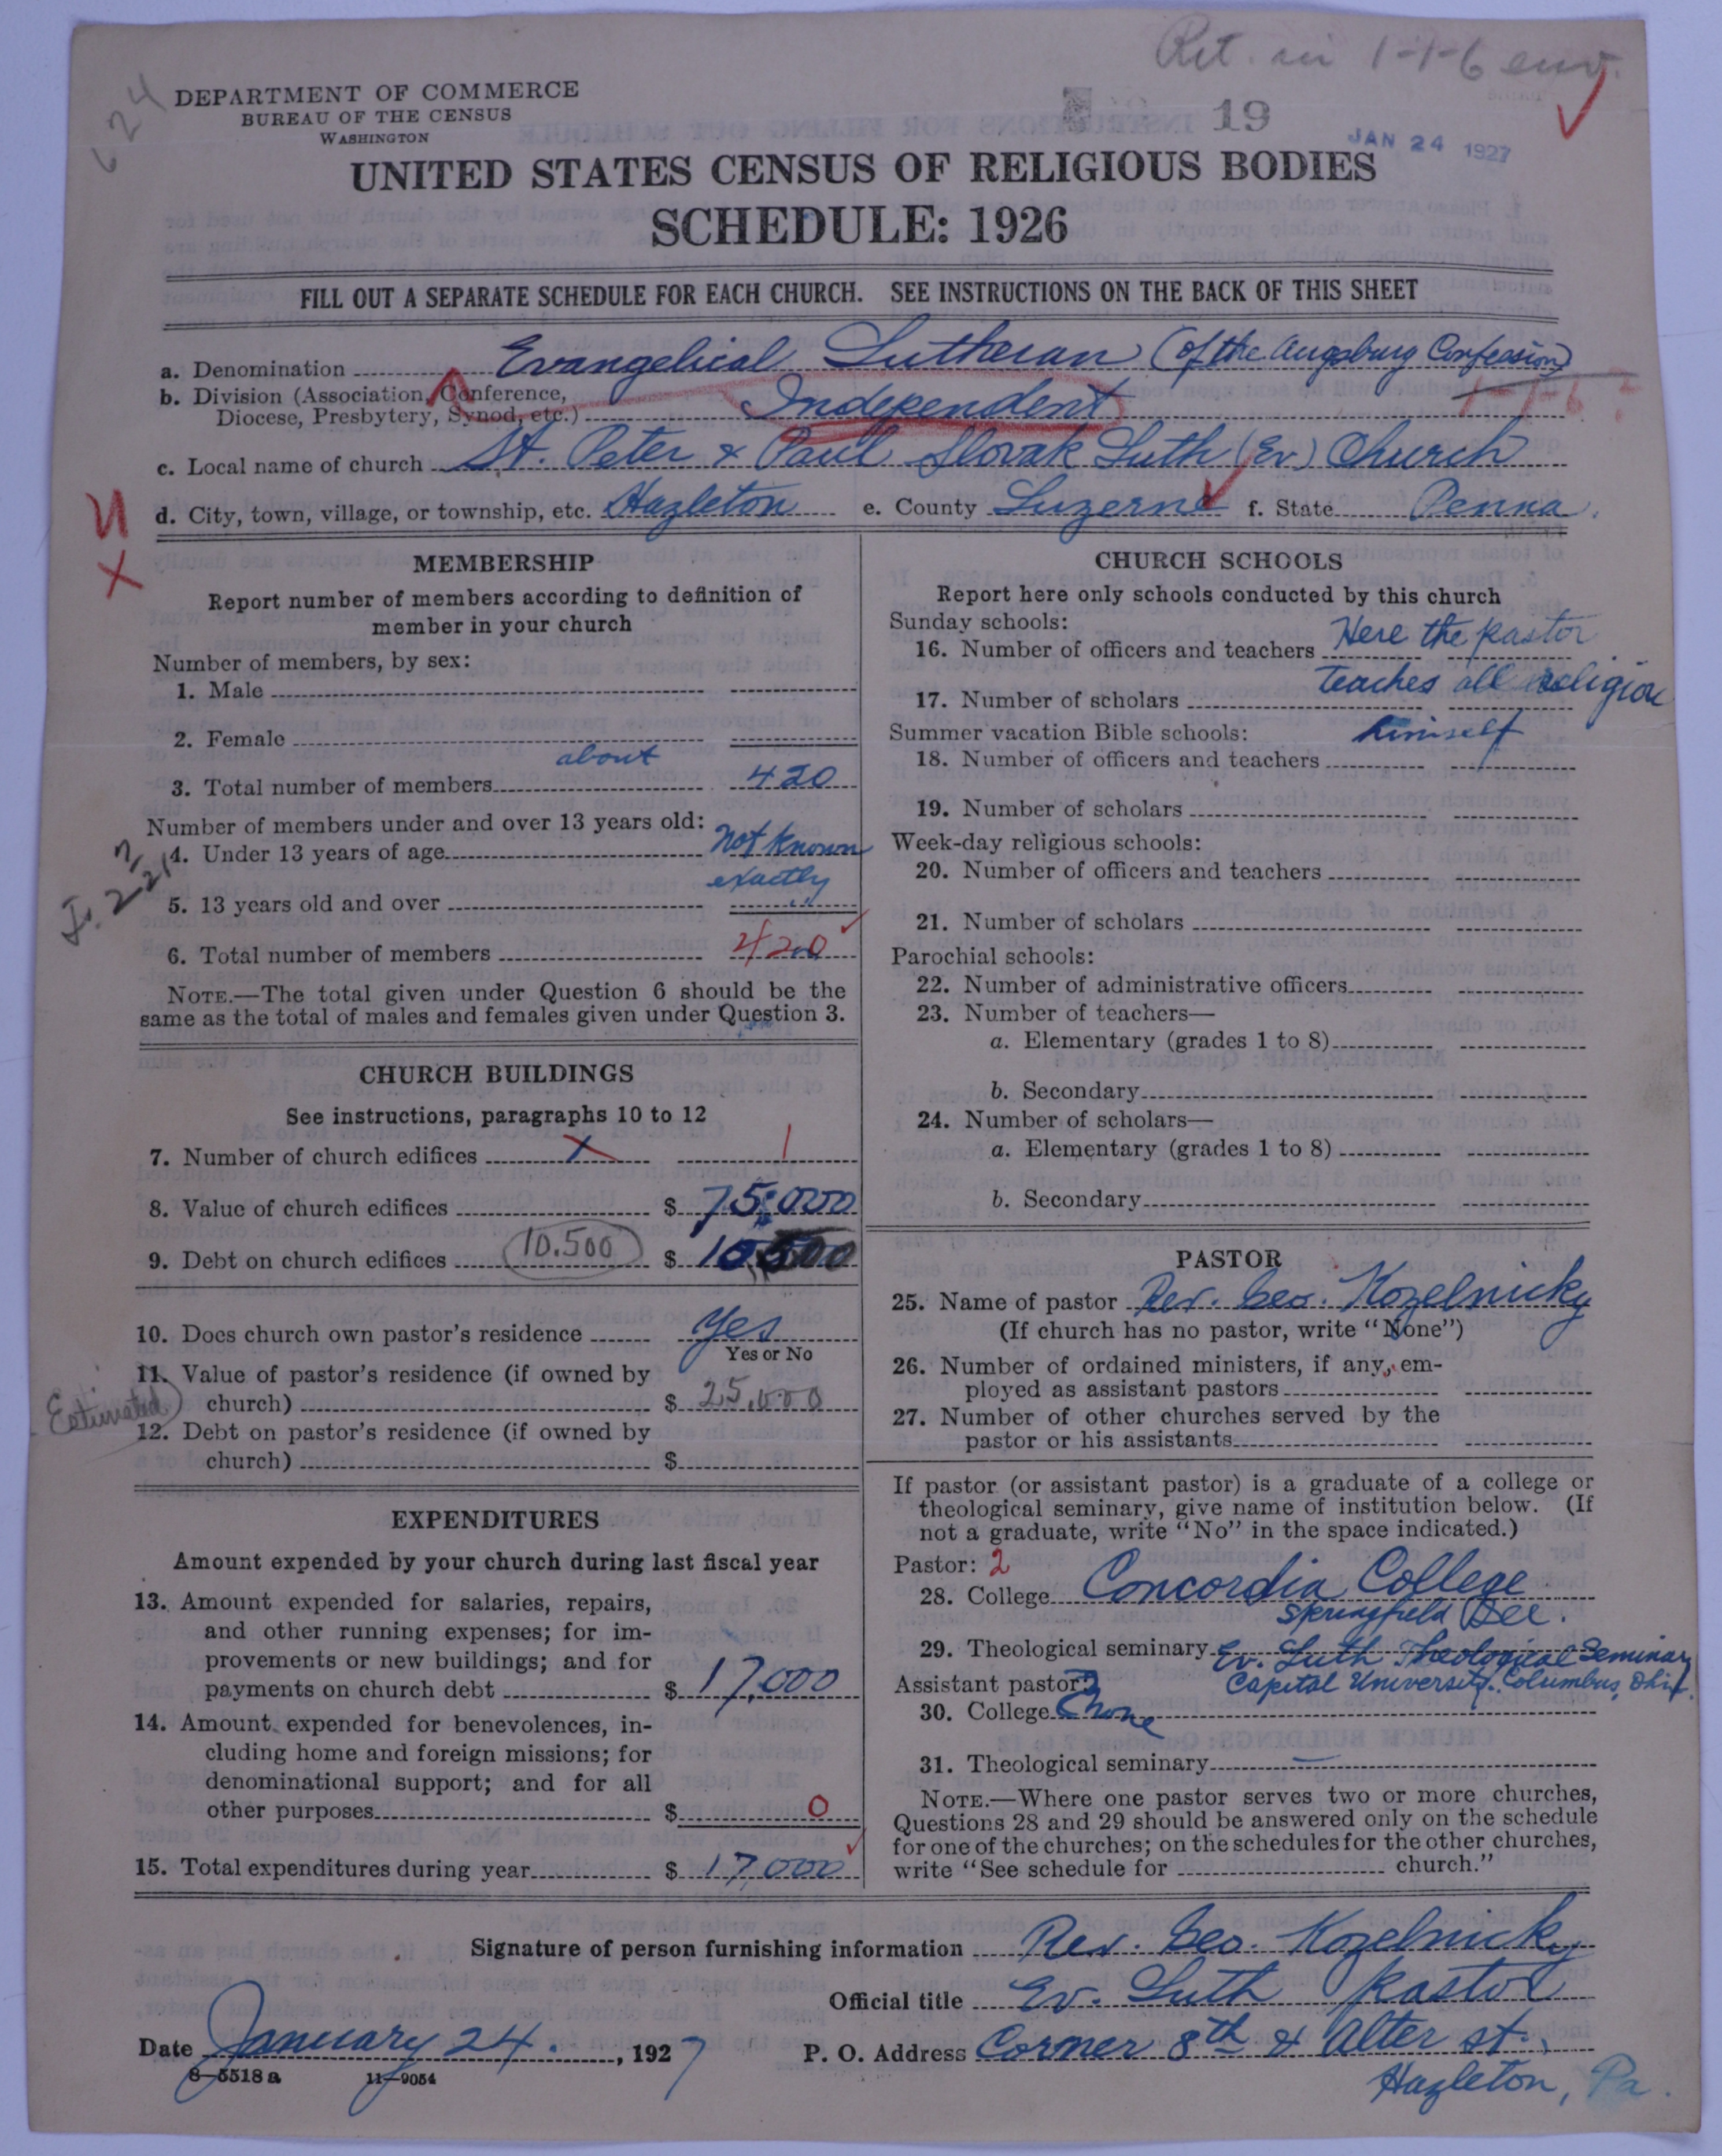 Ret. in 1-1-6 env.
624
DEPARTMENT OF COMMERCE
BUREAU OF THE CENSUS
WASHINGTON
19
JAN 24 1927
UNITED STATES CENSUS OF RELIGIOUS BODIES
SCHEDULE: 1926
FILL OUT A SEPARATE SCHEDULE FOR EACH CHURCH. SEE INSTRUCTIONS ON THE BACK OF THIS SHEET
a. Denomination Evangelical Lutheran (of the Augsburg Confession)
b. Division (Association, Conference,
Diocese, Presbytery, Synod, etc.) Independent 1-1-6?
c. Local name of church St. Peter & Paul Slovak Luth (Ev.) Church
d. City, town, village, or township, etc. Hazleton e. County Luzerne f. State Penna.
MEMBERSHIP
Report number of members according to definition of
member in your church
Number of members, by sex:
1. Male
2. Female
about
3. Total number of members 420
Number of members under and over 13 years old:
4. Under 13 years of age not known
exactly
5. 13 years old and over
6. Total number of members 420
NOTE.—The total given under Question 6 should be the
same as the total of males and females given under Question 3.
CHURCH BUILDINGS
See instructions, paragraphs 10 to 12
7. Number of church edifices X 1
8. Value of church edifices $ 75,000
9. Debt on church edifices 10.500 $ 10,500
10. Does church own pastor's residence Yes
Yes or No
11. Value of pastor's residence (if owned by
church) $ 25,000
Estimated
12. Debt on pastor's residence (if owned by
church) $
EXPENDITURES
Amount expended by your church during last fiscal year
13. Amount expended for salaries, repairs,
and other running expenses; for im-
provements or new buildings; and for
payments on church debt $ 17,000
14. Amount expended for benevolences, in-
cluding home and foreign missions; for
denominational support; and for all
other purposes $ 0
15. Total expenditures during year $ 17,000
CHURCH SCHOOLS
Report here only schools conducted by this church
Sunday schools:
16. Number of officers and teachers Here the pastor
teaches all religion
17. Number of scholars
Summer vacation Bible schools: himself
18. Number of officers and teachers
19. Number of scholars
Week-day religious schools:
20. Number of officers and teachers
21. Number of scholars
Parochial schools:
22. Number of administrative officers
23. Number of teachers—
a. Elementary (grades 1 to 8)
b. Secondary
24. Number of scholars—
a. Elementary (grades 1 to 8)
b. Secondary
PASTOR
25. Name of pastor Rev. Geo. Kozelnicky
(If church has no pastor, write "None")
26. Number of ordained ministers, if any, em-
ployed as assistant pastors
27. Number of other churches served by the
pastor or his assistants
If pastor (or assistant pastor) is a graduate of a college or
theological seminary, give name of institution below. (If
not a graduate, write "No" in the space indicated.)
Pastor: 2
28. College Concordia College
Springfield Ill.
29. Theological seminary Ev. Luth Theological Seminary
Capital University, Columbus, Ohio.
Assistant pastor:
30. College None
31. Theological seminary —
NOTE.—Where one pastor serves two or more churches,
Questions 28 and 29 should be answered only on the schedule
for one of the churches; on the schedules for the other churches,
write "See schedule for church."
Signature of person furnishing information Rev. Geo. Kozelnicky
Official title Ev. Luth Pastor
Date January 24. , 1927 P. O. Address Corner 8th & Alter st.,
Hazleton, Pa.
8—5518a 11—9054